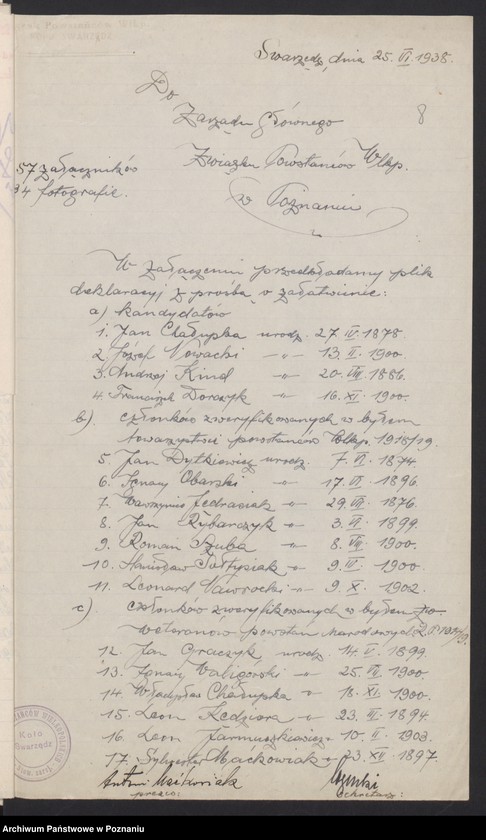 Swarzędz, dnia 25. VI. 1938.
Do
Zarządu Głównego
8
Związku Powstańców Wlkp.
w Poznaniu
57 załączników
34 fotografie.
W załączeniu przedkładamy plik
deklaracyj z prośbą o załatwienie:
a) kandydatów
1. Jan Chałupka urodz. 27. IV. 1878.
2. Józef Nowacki -"- 13. II. 1900
3. Andrzej Kind -"- 20. VIII. 1886.
4. Franciszek Dorczyk -"- 16. XI. 1900.
b) członków zweryfikowanych w byłem
towarzystwie powstańców Wlkp. 1918/19.
5. Jan Dytkiewicz urodz. 7. VI. 1874.
6. Ignacy Obarski -"- 17. VI. 1896.
7. Wawrzyniec Jedrasiak -"- 29. VII. 1876.
8. Jan Rybarczyk -"- 3. VI. 1899.
9. Roman Szuba -"- 8. VIII. 1900.
10. Stanisław -"- 9. IV. 1900.
11. Leonard Nawrocki -"- 9. X. 1902.
c) członków zweryfikowanych w byłem
weteranów powstań narodowych R.P. 1914/19.
12. Jan Graczyk, urodz. 14. V. 1899.
13. Ignacy Waligórski -"- 25. VII. 1900.
14. Władysław Chałupka -"- 18. XI. 1900.
15. Leon Kędziora -"- 23. III. 1894.
16. Leon Jarmuszkiewicz -"- 10. II. 1903.
17. Sylwester Maćkowiak -"- 23. XII. 1897.
Antoni
prezes:
sekretarz:
Koło
Swarzędz
Archiwum Państwowe w Poznaniu